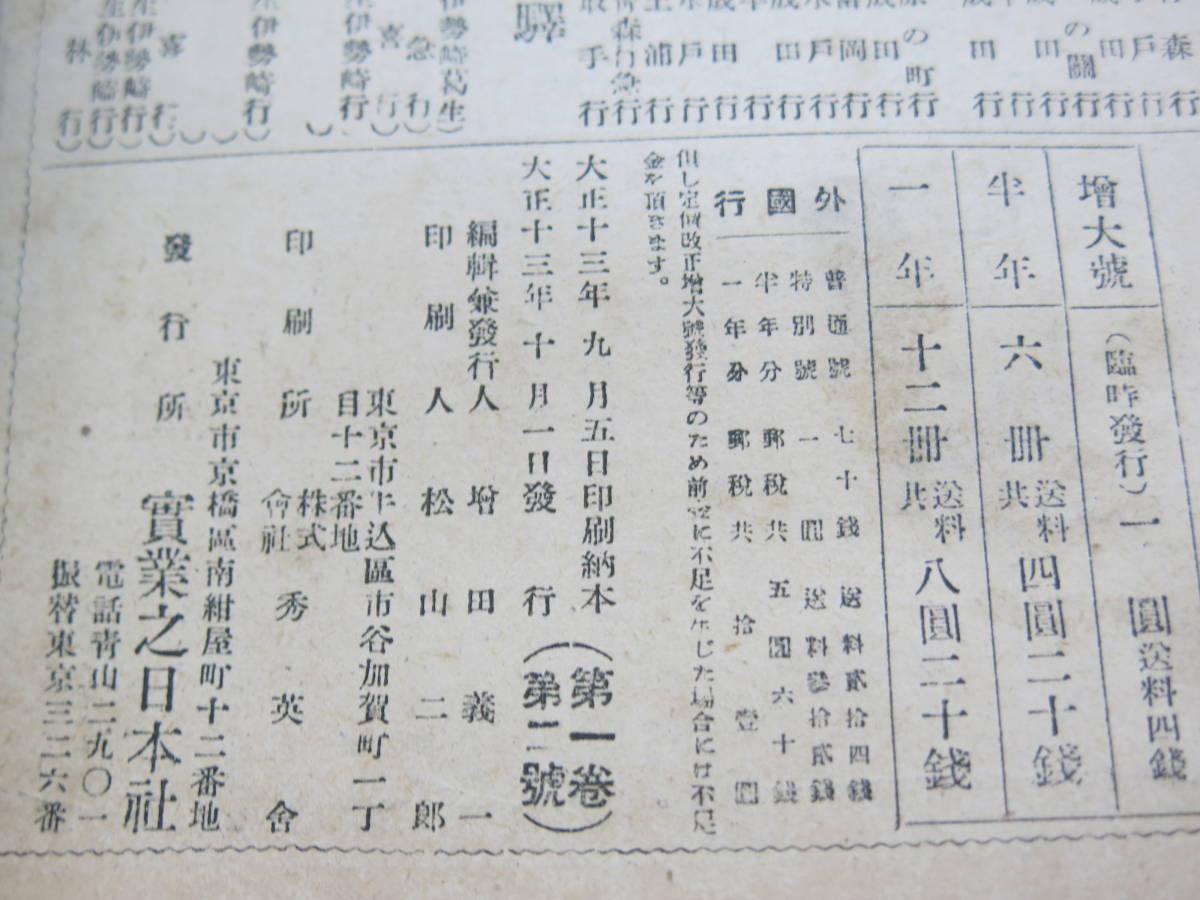 森行
戶行
田行
の關行
田行
田行
の町行
田行
岡行
戶行
田行
田行
戶行
土浦行
取手行
驛
伊勢崎葛生)
急行)
喜行)
伊勢崎行(
伊勢崎行)
喜行
生伊勢崎行)
生伊勢崎行)
林行)
增大號 (臨時發行) 一圓 送料四錢
半年 六冊 送料共 四圓二十錢
一年 十二冊 送料共 八圓二十錢
外國行
普通號 七十錢 送料貳拾四錢
特別號 一圓 送料參拾貳錢
半年分 郵稅共 五圓六十錢
一年分 郵稅共 拾壹圓
但し定價改正增大號發行等のため前金に不足を生じた場合には不足
金を頂きます。
大正十三年九月五日印刷納本
大正十三年十月一日發行
(第一卷)
(第二號)
編輯兼發行人 增田義一
印刷人 松山二郎
東京市牛込區市谷加賀町一丁
目十二番地
印刷所 株式會社 秀英舍
東京市京橋區南紺屋町十二番地
發行所 實業之日本社
電話青山二九〇一
振替東京三二六番